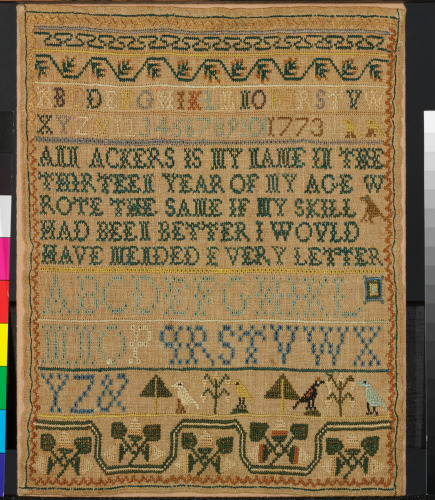 ABCDEFGHIKLMNOPQRSTVW
XYZ& 123456789101773
ANN ACKERS IS MY NAME IN THE
THIRTEEN YEAR OF MY AGE W
ROTE THE SAME IF MY SKILL
HAD BEEN BETTER I WOVLD
HAVE MENDED EVERY LETTER
ABCDEFGHIKL
MNOPQRSTVWX
YZ&